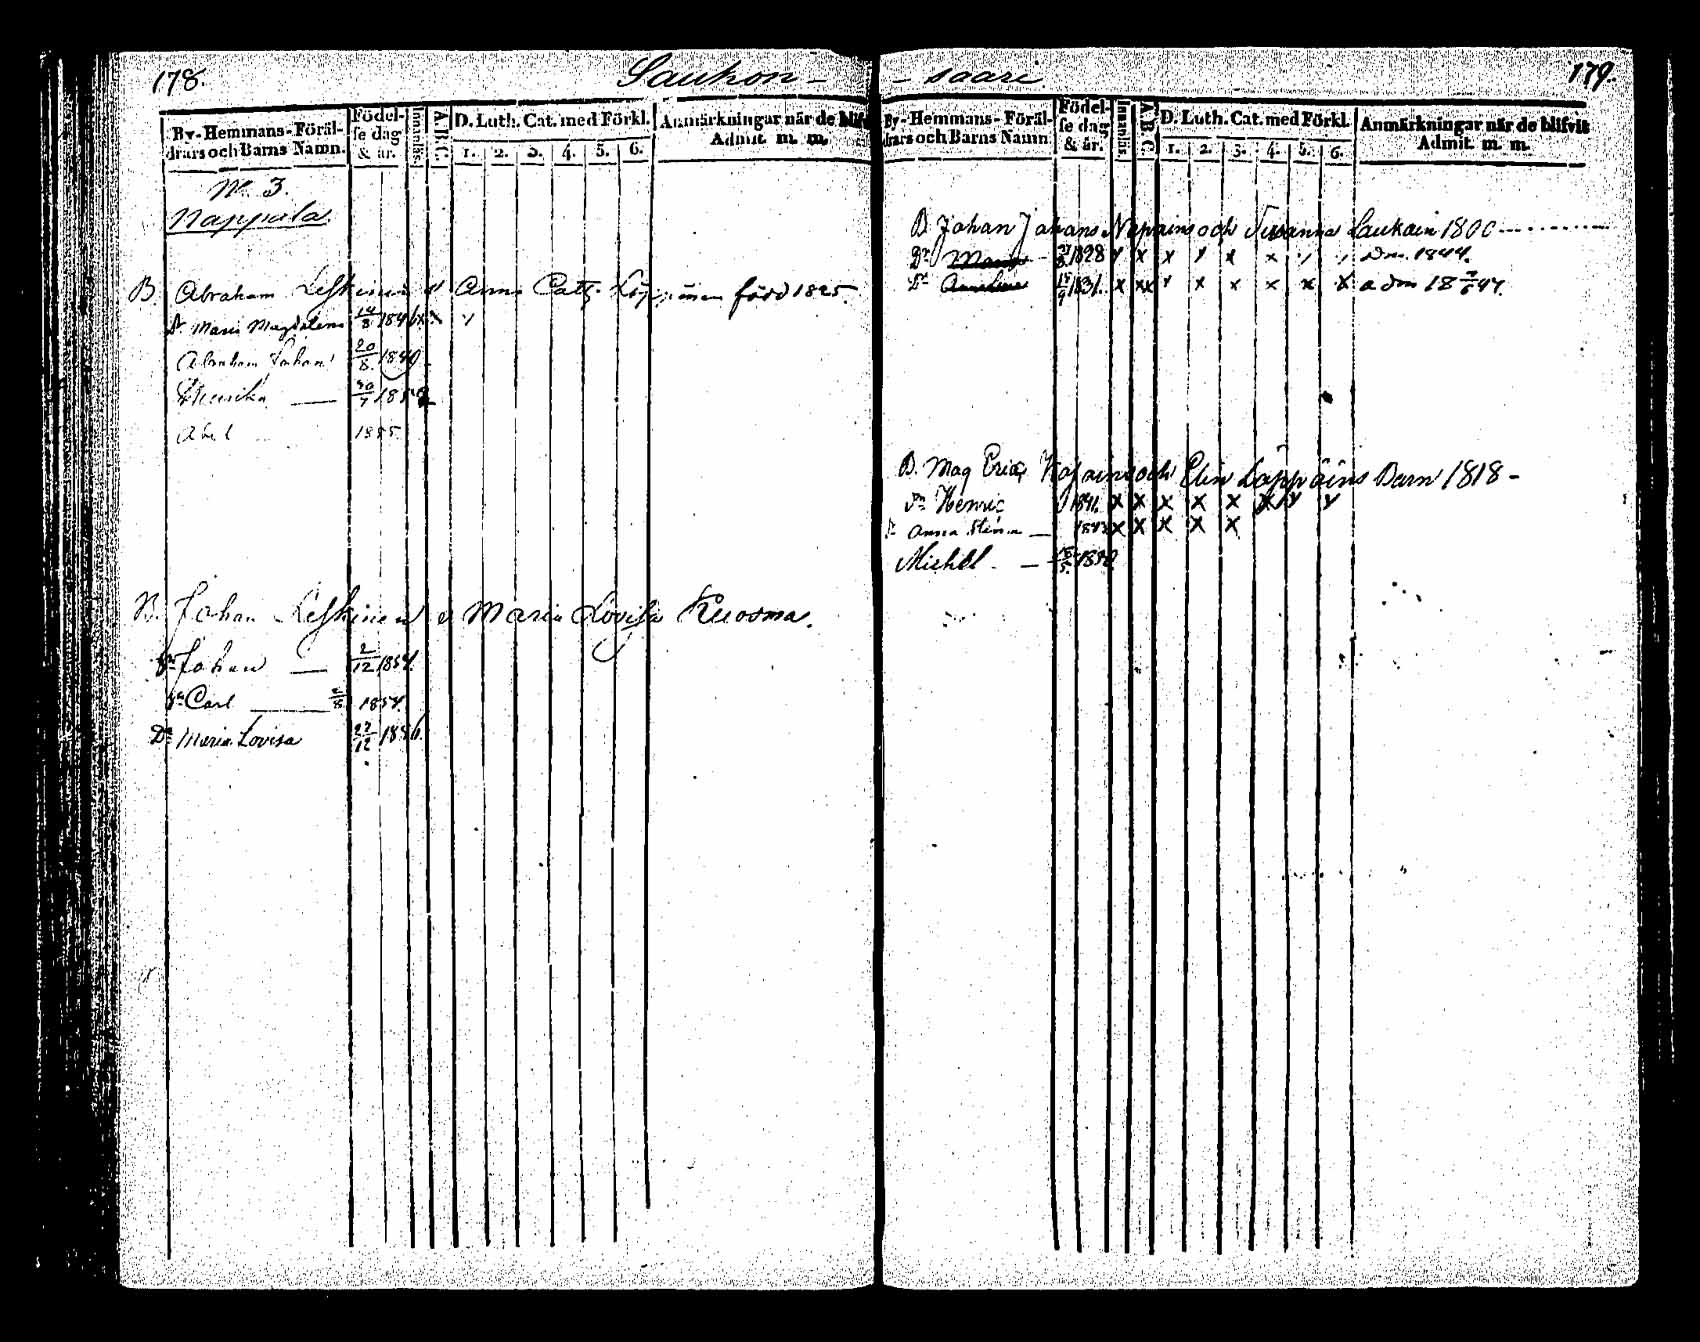 178.
Saukon-
By-Hemmans-Föräl-
drars och Barns Namn.
Födel-
se dag
& år.
Innanläs.
A.B.C.
D. Luth. Cat. med Förkl.
1. 2. 3. 4. 5. 6.
Anmärkningar når de blifvit
Admit. m. m.
No 3.
Nappula
B Abraham Leskinen o Anna Catg. född 1825.
Dr Maria Magdalena 14/8 184 x x
Abraham Johan 20/8. 1849
Henrika — 30/7 185
Abel 1855
B. Johan Leskinen o Maria Lovisa Kuosma.
Sn Johan — 2/12 1851.
Sn Carl — 2/8 1854.
Dr Maria Lovisa 22/12 1856.
- saari
179.
By-Hemmans-Föräl-
drars och Barns Namn
Födel-
se dag
& år.
Innanläs
A.B.C.
D. Luth. Cat. med Förkl.
1. 2. 3. 4. 5. 6.
Anmärkningar når de blifvit
Admit. m. m.
B Johan Johans Napains och Susanna Laukain 1800
Dr Maria - 1828 x x x x x x x Dm. 1844.
Dr 1831. x xx x x x x x x adm 18 7/6 47.
B. Mag Erics Napains och Elin Läppäins Barn 1818 -
Sn Henric 1841. x x x x x x x x
Dr Anna Stina — 184 x x x x x
Michel — 18/5 185